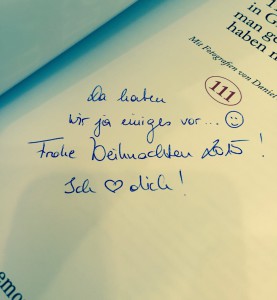 in G
man ge
haben n
Mit Fotografien von Daniel
111
da haben
wir ja einiges vor... ☺
Frohe Weihnachten 2015!
Ich ♡ dich!
emo